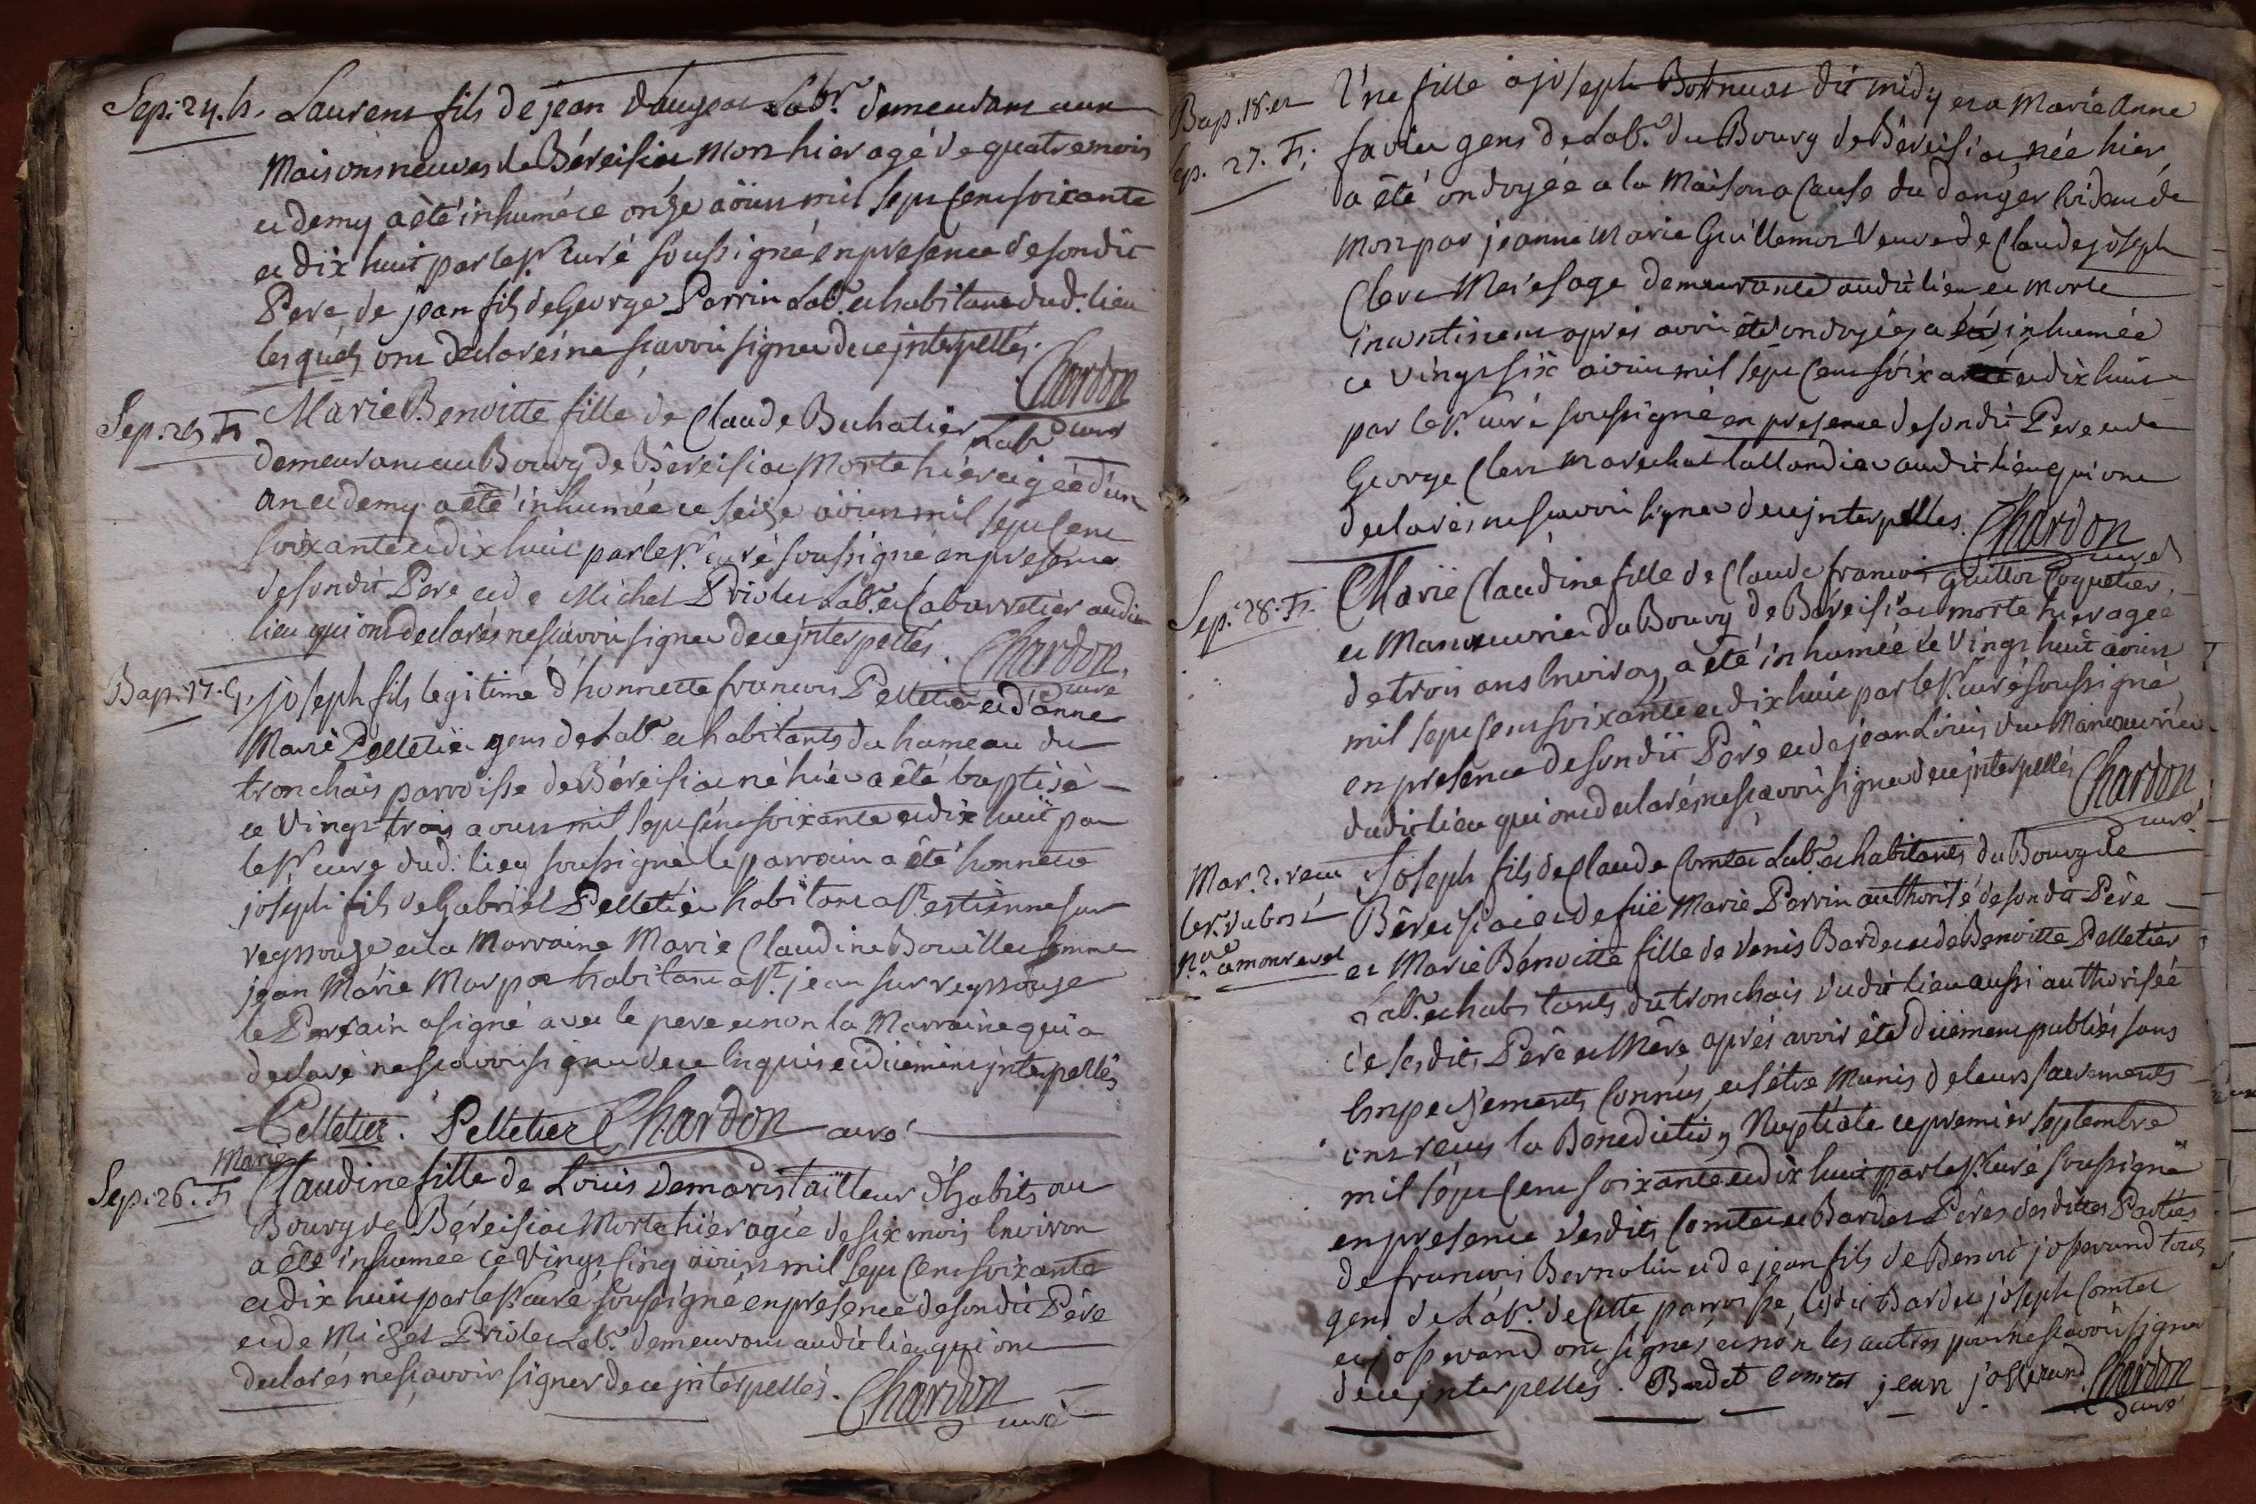 Sep. 24. h. Laurent fils de jean Labr. demeurant aux
Maisons neuves de Béreisiat Mort hier agé de quatre mois
et demy a été inhumé ce onze aoüst mil sept cent soixante
et dix huit par le Sr. Curé soussigné en presence de sondit
Pere de jean fils de George Perrin Labr. et habitant dud. lieu
lesquels ont declarés ne sçavoir signer de ce jnterpellés.
Chardon curé
Sep. 25 F. Marie Benoitte fille de Claude Buhatier Labr
demeurant au Bourg de Béreisiat Morte hier agée d'un
an et demy a été inhumée ce seize aoüst mil sept cent
soixante et dix huit par le Sr. curé soussigné en presence
de sondit Pere et de Michel Priolet Labr. et Cabarretier audit
lieu qui ont declarés ne sçavoir signer de ce jnterpellés.
Chardon curé
Bap. 17. G. joseph fils legitime d'honnette francois Pelletier et d'anne
Marie Pelletier gens de Labr. et habitants du hameau du
tronchais parroisse de Béreisiat né hier a été baptisé
ce Vingt trois aoust mil sept cent soixante et dix huit par
le Sr. curé dud. lieu soussigné le parrain a été honnette
joseph fils de Gabriel Pelletier habitant a St. estienne sur
reyssouze et la Marraine Marie Claudine Bouillet femme
jean Marie Marpoz habitant a St. jean sur reyssouze
le Parrain a signé avec le pere et non la Marraine qui a
declaré ne sçavoir signer de ce Enquis et düement jnterpellés
Pelletier. Pelletier Chardon curé
Marie
Sep. 26. F. Claudine fille de Loüis Demaris tailleur d'habits au
Bourg de Béreisiat Morte hier agée de six mois Environ
a été inhumée ce Vingt Cinq aoüst mil sept Cent soixante
et dix huit par le Sr. curé soussigné en presence de sondit Pére
et de Michel Priolet Labr. demeurant audit lieu qui ont
declarés ne sçavoir signer de ce jnterpellés.
Chardon curé
Bap. 18. et Une fille a joseph dit midy et a Marie Anne
Sep. 27. F. gens de Labr. du Bourg de Béreisiat née hier
a été ondoyée a la Maison a Cause du danger de
Mort par jeanne Marie Guillemot Veuve de Claude joseph
Clerc Mere sage demeurante audit lieu et Morte
incontinent aprés avoir été ondoyée, a été inhumée
ce Vingt six aoüst mil sept Cent soixante et dix huit
par le Sr. curé soussigné en presence de sondit Pere et de
George Clerc Marechal taillandier audit lieu qui ont
declarés ne sçavoir signer de ce jnterpellés.
Chardon curé
Sep. 28. F. Marie Claudine fille de Claude francois Guillot Coquetier
et Manoeuvrier du Bourg de Béreisiat morte hier agée
de trois ans Environ, a été inhumée le Vingt huit aoüst
mil sept Cent soixante et dix huit par le Sr. curé soussigné
en presence de sondit Pére et de jean Loüis Manoeuvrier
dudit lieu qui ont declarés ne sçavoir signer de ce jnterpellés
Chardon curé
Mar. 2. Joseph fils de Claude Comtet Labr. et habitants du Bourg de
Béreisiat et de füe Marie Perrin authorisé de sondit Pére
a montrevel et Marie Bénoitte fille de Denis Bardet et de Benoitte Pelletier
Labr. et habitants du tronchais dudit lieu aussi authorisée
de sesdits Pére et Mére aprés avoir été düement publiés sans
Empechements Connus, et s'étre Munis de leurs sacrements
ont reçus la Benediction Nuptiale ce premier septembre
mil sépt Cent soixante et dix huit par le Sr. curé soussigné
en presence desdits Comtet et Bardet Péres desdittes Parties
de francois Bernolin et de jean fils de Benoit josserand tous
gens de Labr. de Cette parroisse, lesdit Bardet joseph Comtet
et josserand ont signés et non les autres pour ne sçavoir signer
de ce jnterpellés. Bardet Comtet jean josserand Chardon
curé